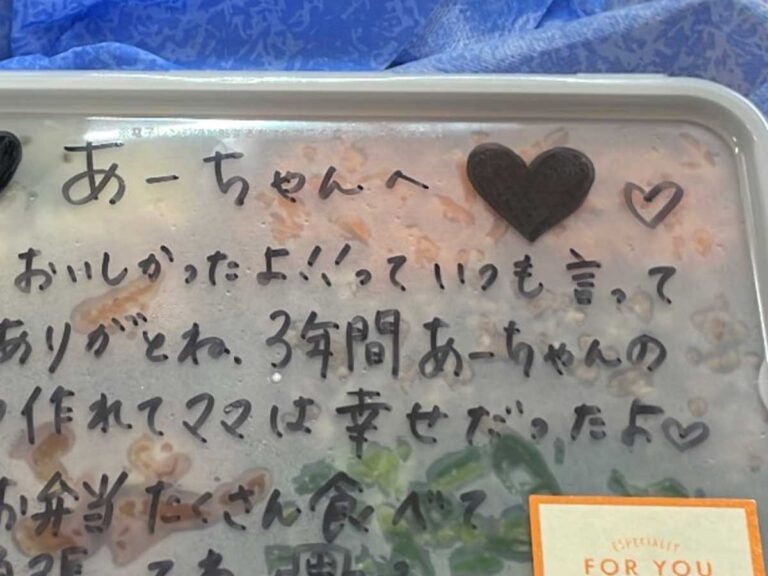 あーちゃんへ
おいしかったよ!!っていつも言って
ありがとね、3年間あーちゃんの
作れてママは幸せだったよ♡
お弁当たくさん食べて
ESPECIALLY
FOR YOU